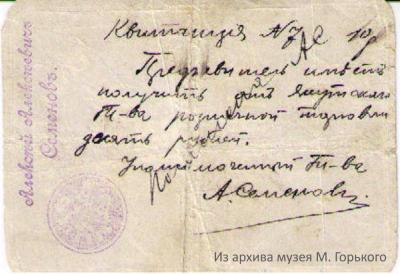 Алексѣй Алексѣевичъ
Семеновъ.
Квитанція № 10р
Предъявитель имѣетъ
получить отъ Якутскаго
Т-ва розничной торговли
десять рублей.
Уполномоченный Т-ва
А. Семеновъ
Из архива музея М. Горького